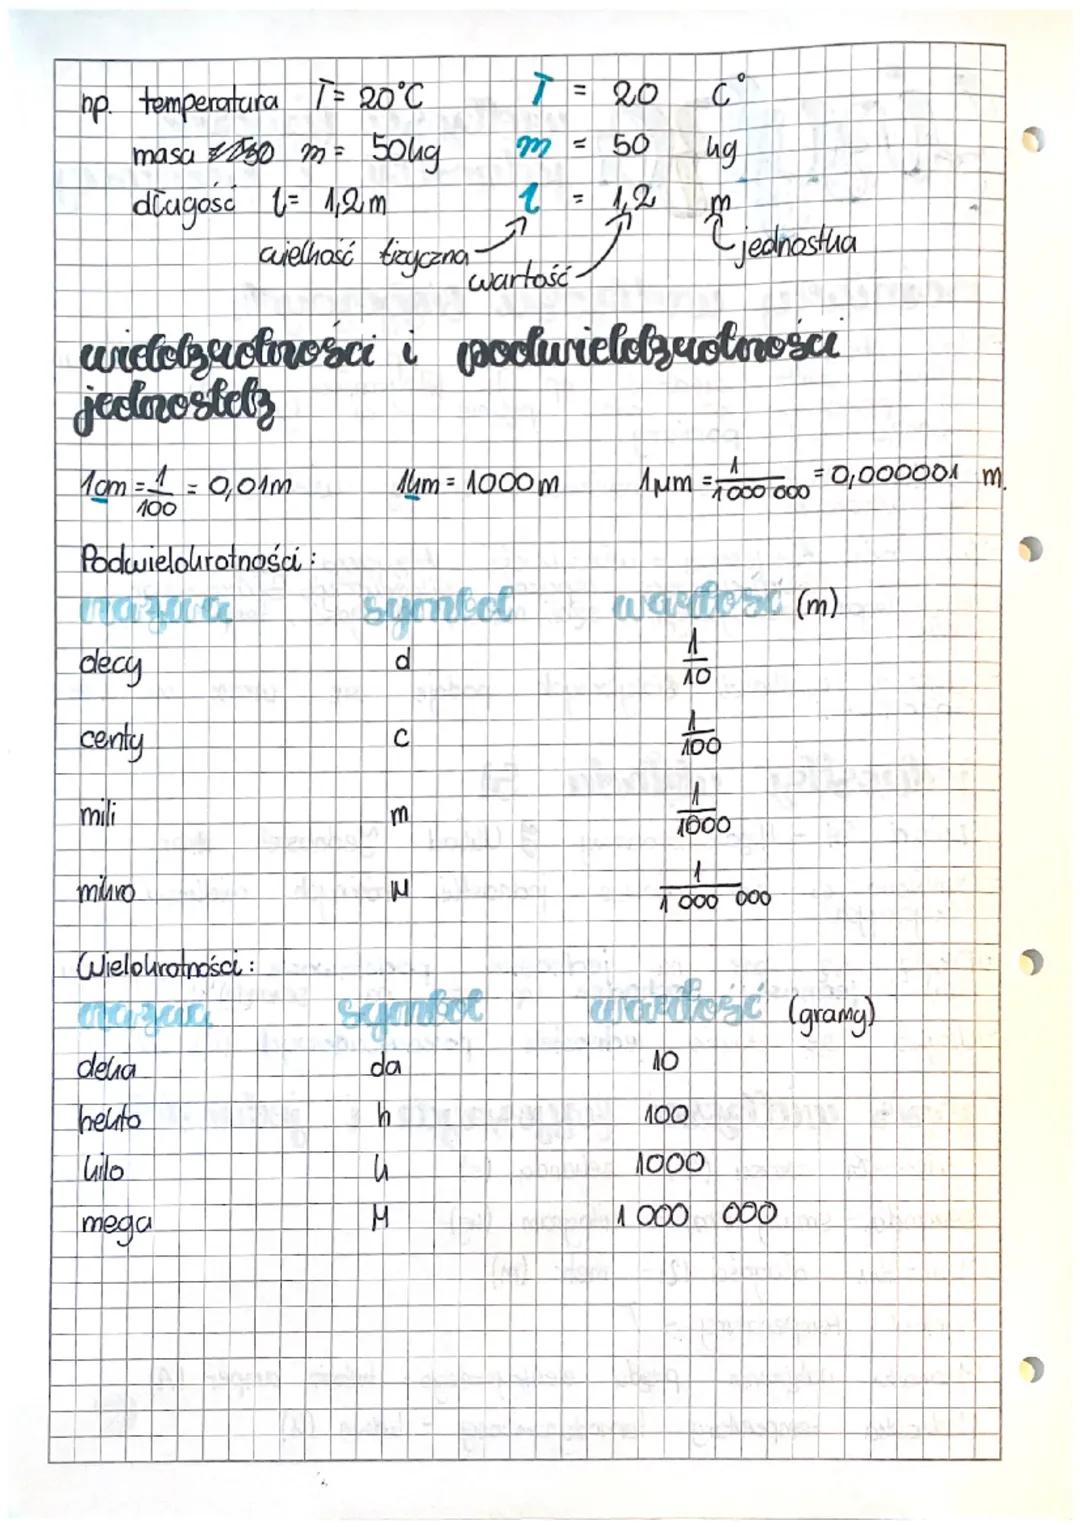 np. temperatura T = 20°C T = 20 C°
masa m = 50kg m = 50 kg
długość l = 1,2m l = 1,2 m
wielkość fizyczna wartość jednostka
wielokrotności i podwielokrotności
jednostek
1cm = 1/100 = 0,01m 1km = 1000m 1μm = 1/1 000 000 = 0,000001 m.
Podwielokrotności:
nazwa symbol wartość (m)
decy d 1/10
centy c 1/100
mili m 1/1000
mikro μ 1/1 000 000
Wielokrotności:
nazwa symbol wartość (gramy)
deka da 10
hekto h 100
kilo k 1000
mega M 1 000 000